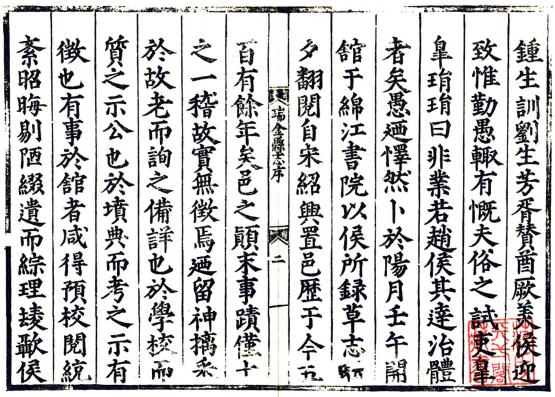 鍾生訓劉生芳胥贊酋厥美侯迎
致惟勤愚輙有慨夫俗之試吏皐
皐琑琑曰非業若趙侯其達治體
者矣愚廼懌然卜於陽月壬午開
舘于綿江書院以侯所録草志
夕翻閱自宋紹興置邑歷于今
瑞金縣志序 二
百有餘年矣邑之顛末事蹟僅十
之一稽故實無徵焉廼留神摛采
於故老而詢之備詳也於學校而
質之示公也於墳典而考之示有
徵也有事於舘者咸得預校閱統
紊昭晦剔陋綴遺而綜理歟侯